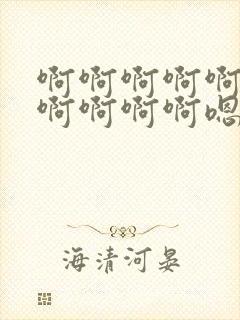 啊啊啊啊啊
啊啊啊啊嗯
海清河晏